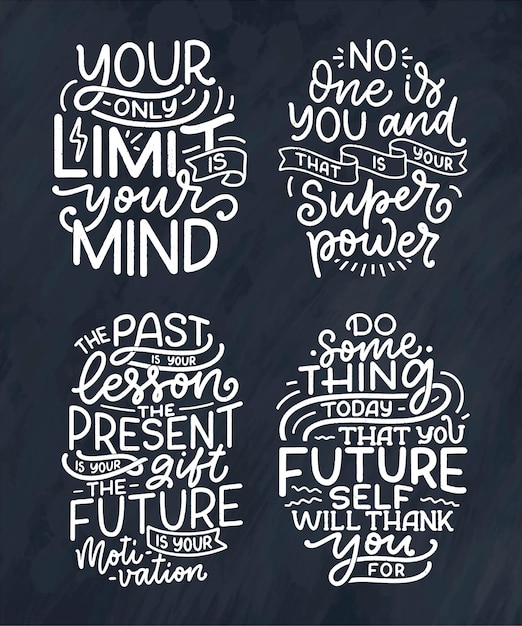 YOUR
ONLY
LIMIT IS
your
MIND
NO
One is
YOU and
THAT IS YOUR
Super
power
THE PAST
IS YOUR
lesson
THE
PRESENT
IS YOUR gift
THE
FUTURE
IS YOUR
Moti-
vation
DO
some
THING
TODAY
THAT YOU
FUTURE
SELF
WILL THANK
you
FOR